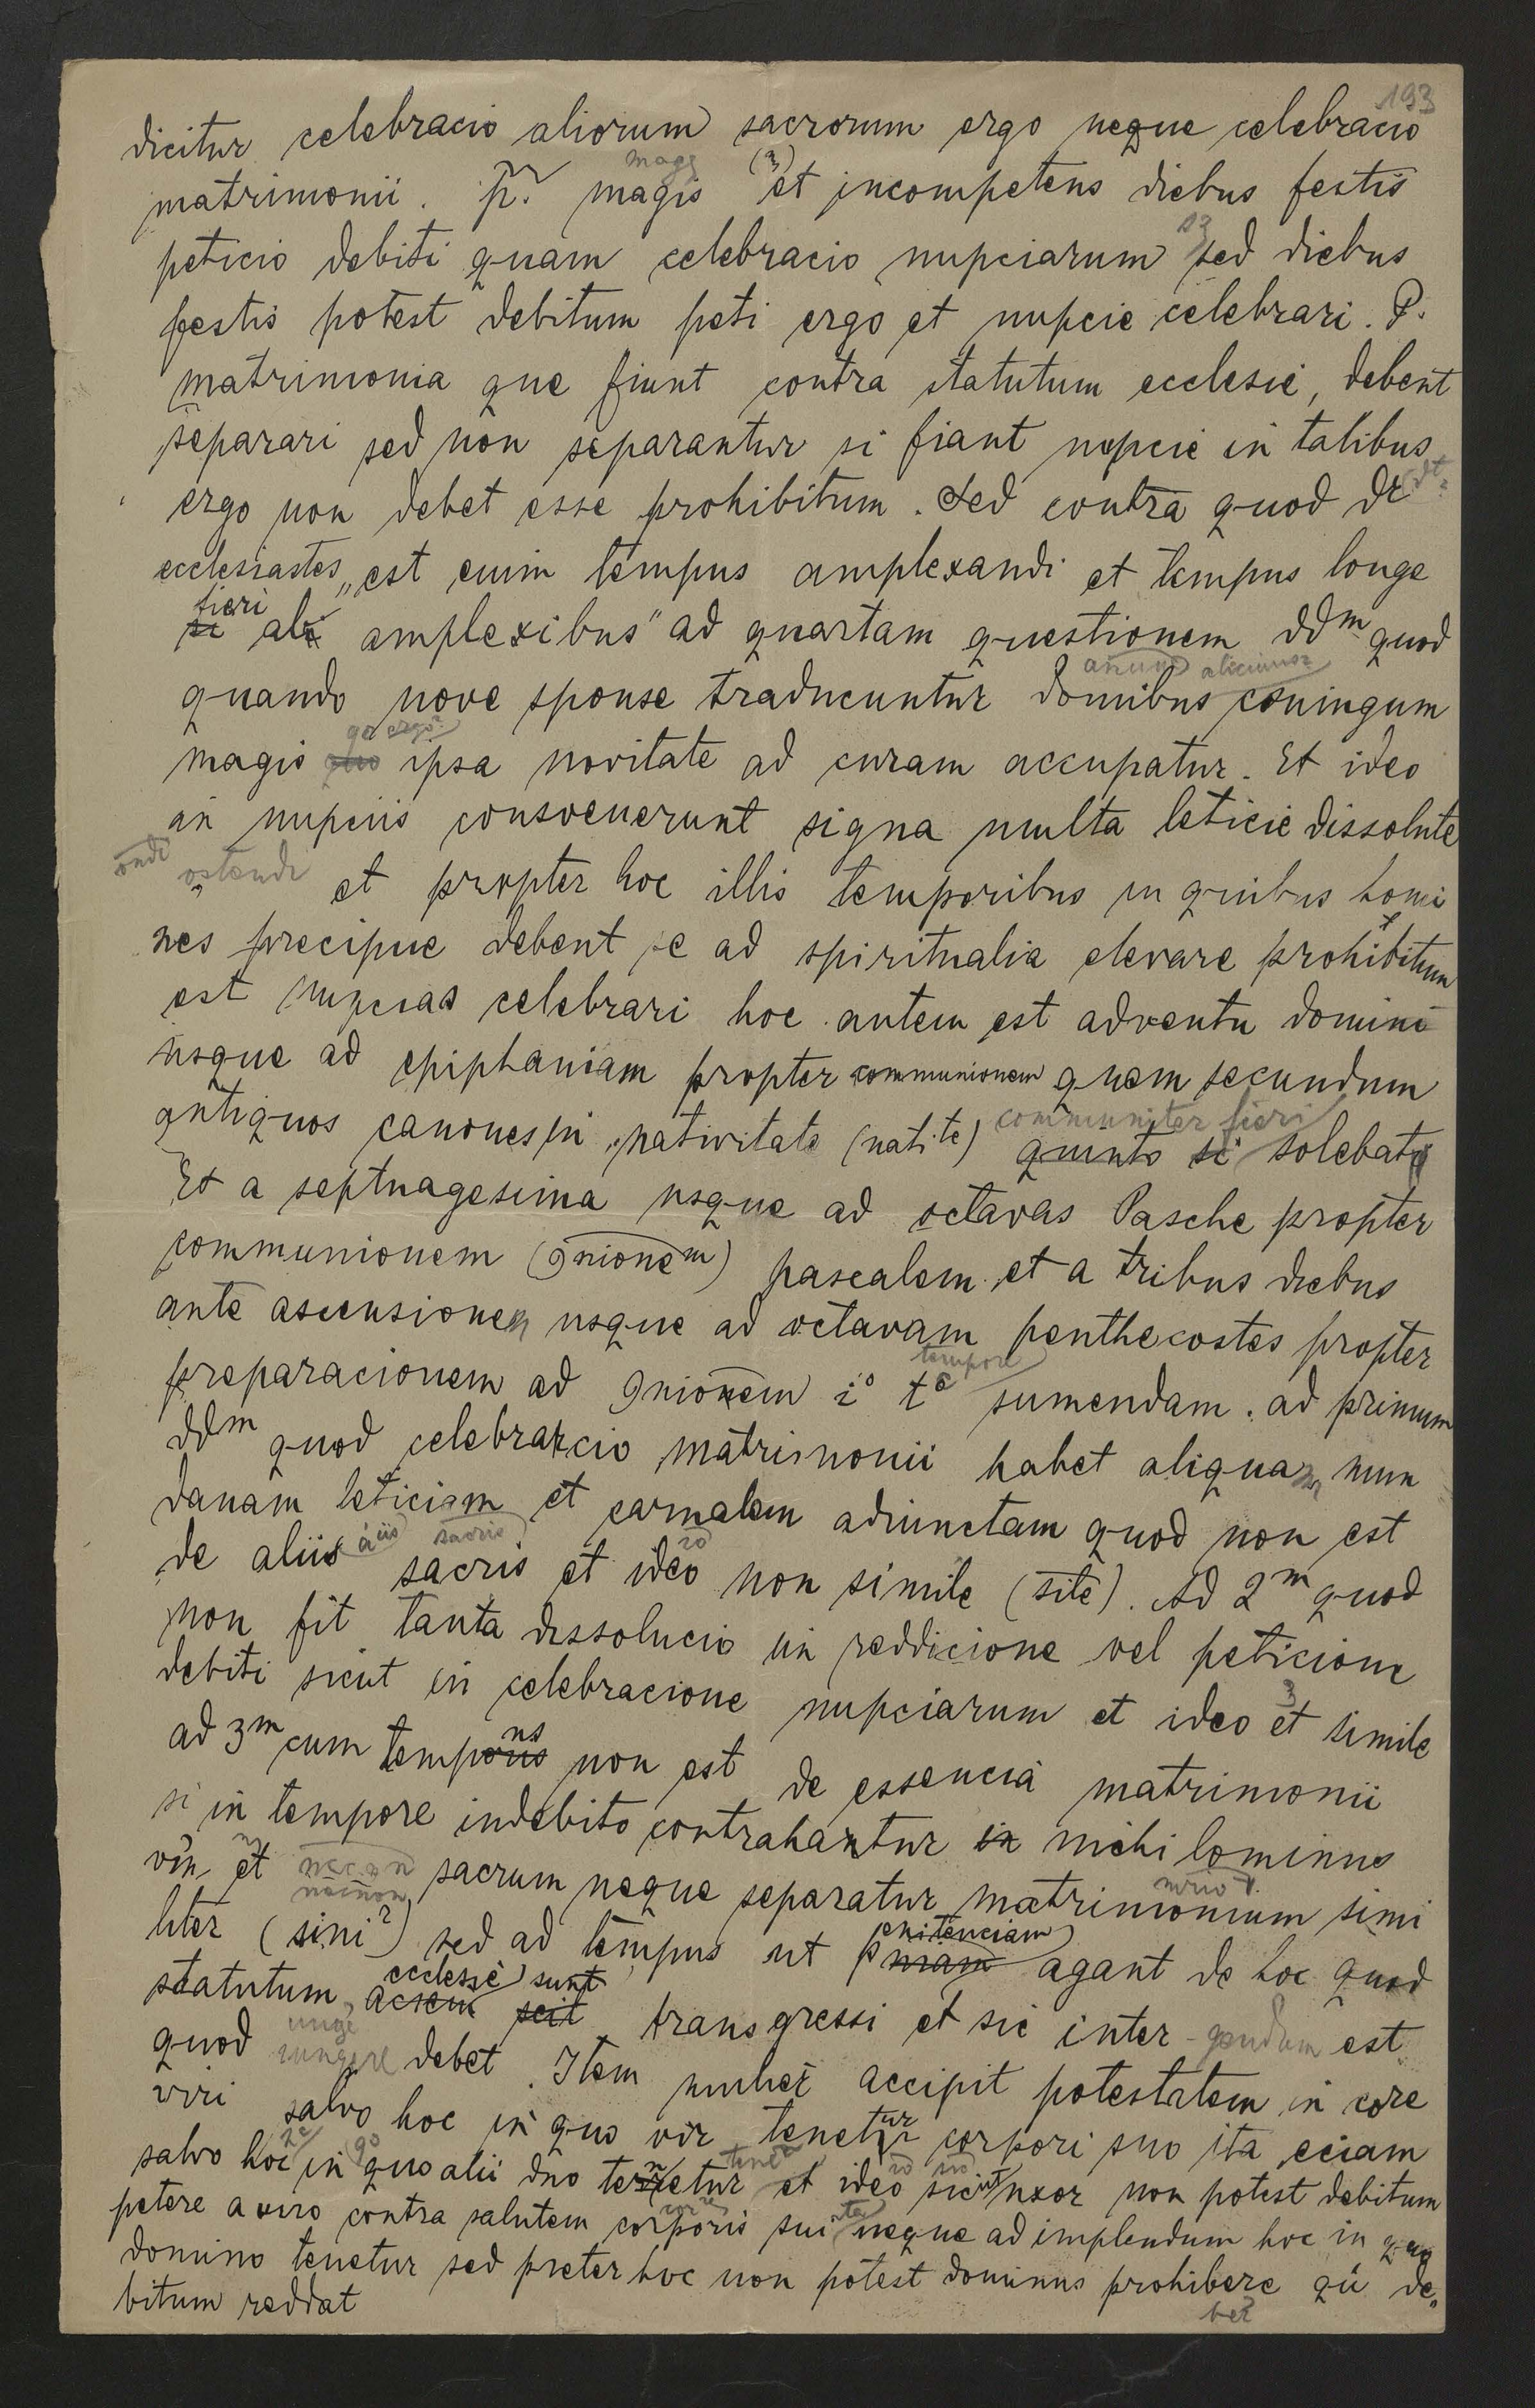 193
dicitur celebracio aliorum sacrorum ergo neque celebracio
matrimonii. p̃. magis (3) et incompetens diebus festis
peticio debiti quam celebracio nupciarum sed diebus
festis potest debitum peti ergo et nupcie celebrari. P.
matrimonia que fiunt contra statutum ecclesie, debent
separari sed non separantur si fiant nupcie in talibus
ergo non debet esse prohibitum. Sed contra quod dr
ecclesiastes „est enim tempus amplexandi et tempus longe
fieri
si ab amplexibus" ad quartam questionem ddm quod
quando nove sponse traducuntur domibus coniugum
magis quo ipsa novitate ad curam accupatur. Et ideo
in nupciis consvenerunt signa multa leticie dissolute
ostendi et propter hoc illis temporibus in quibus homi
nes precipue debent se ad spiritualia elevare prohibitum
est nupcias celebrari hoc autem est adventu domini
usque ad epiphaniam propter communionem quem secundum
communiter fieri
antiquos canones in nativitate (natite) quinto si solebat
Et a septuagesima usque ad octavas Pasche propter
communionem (9nionem) pascalem et a tribus diebus
ante ascensionem usque ad octavam penthecostes propter
tempore
preparacionem ad 9nionem i° te sumendam. ad primum
ddm quod celebracio matrimonii habet aliquam mun
danam leticiam et carnalem adiunctam quod non est
de aliis sacris et ideo non simile (site). Ad 2m quod
non fit tanta dissolucio in reddicione vel peticione
debiti sicut in celebracione nupciarum et ideo et simile
ad 3m cum temporis non est de essencia matrimonii
si in tempore indebito contrahantur in nichilominus
vin et sacrum neque separatur matrimonium simi
liter (sini?) sed ad tempus ut penitenciam agant de hoc quod
ecclesie sunt
statutum acsem scit transgressi et sic inter gendum est
quod iungere debet. Item mulier accipit potestatem in core
viri salvo hoc in quo vir tenetur corpori suo ita eciam
salvo hoc in quo alii dno tenetur et ideo sicut uxor non potest debitum
petere a viro contra salutem corporis sui neque ad implendum hoc in quo
domino tenetur sed preter hoc non potest dominus prohibere qu de„
bitum reddat